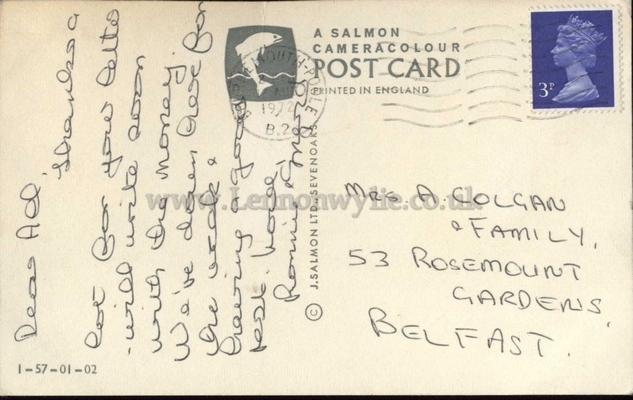 Dear All,
Thanks a
lot for your letter
will write soon
with the money.
We've down here for
the week &
having a good
rest. Love
Ronnie & Mary
A SALMON
CAMERACOLOUR
POST CARD
PRINTED IN ENGLAND
MOUTH-POOLE
1972
B.2
3P
© J.SALMON LTD., SEVENOAKS
www.Lennonwylie.co.uk
MRS A. COLGAN
& FAMILY,
53 ROSEMOUNT
GARDENS,
BELFAST.
1-57-01-02